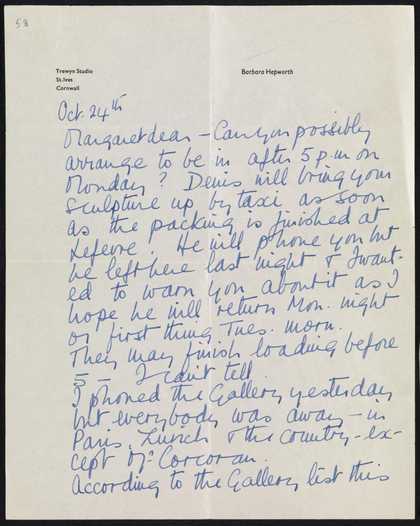 58
Trewyn Studio
St. Ives
Cornwall
Barbara Hepworth
Oct. 24th
Margaret dear – Can you possibly
arrange to be in after 5 p.m on
Monday? Denis will bring your
sculpture up by taxi as soon
as the packing is finished at
Lefevre. He will phone you but
he left here last night & I want-
ed to warn you about it as I
hope he will return Mon. night
or first thing Tues. morn.
They may finish loading before
5 – I can't tell.
I phoned the Gallery yesterday
but everybody was away – in
Paris, Zurich & the country – ex-
cept Mr Corcoran.
According to the Gallery list this